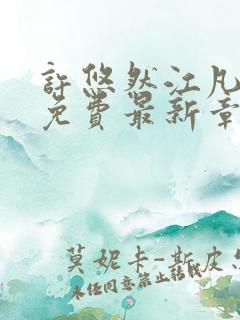 許悠然江凡
免費最新章
莫妮卡-斯皮
未任同意禁止轉載